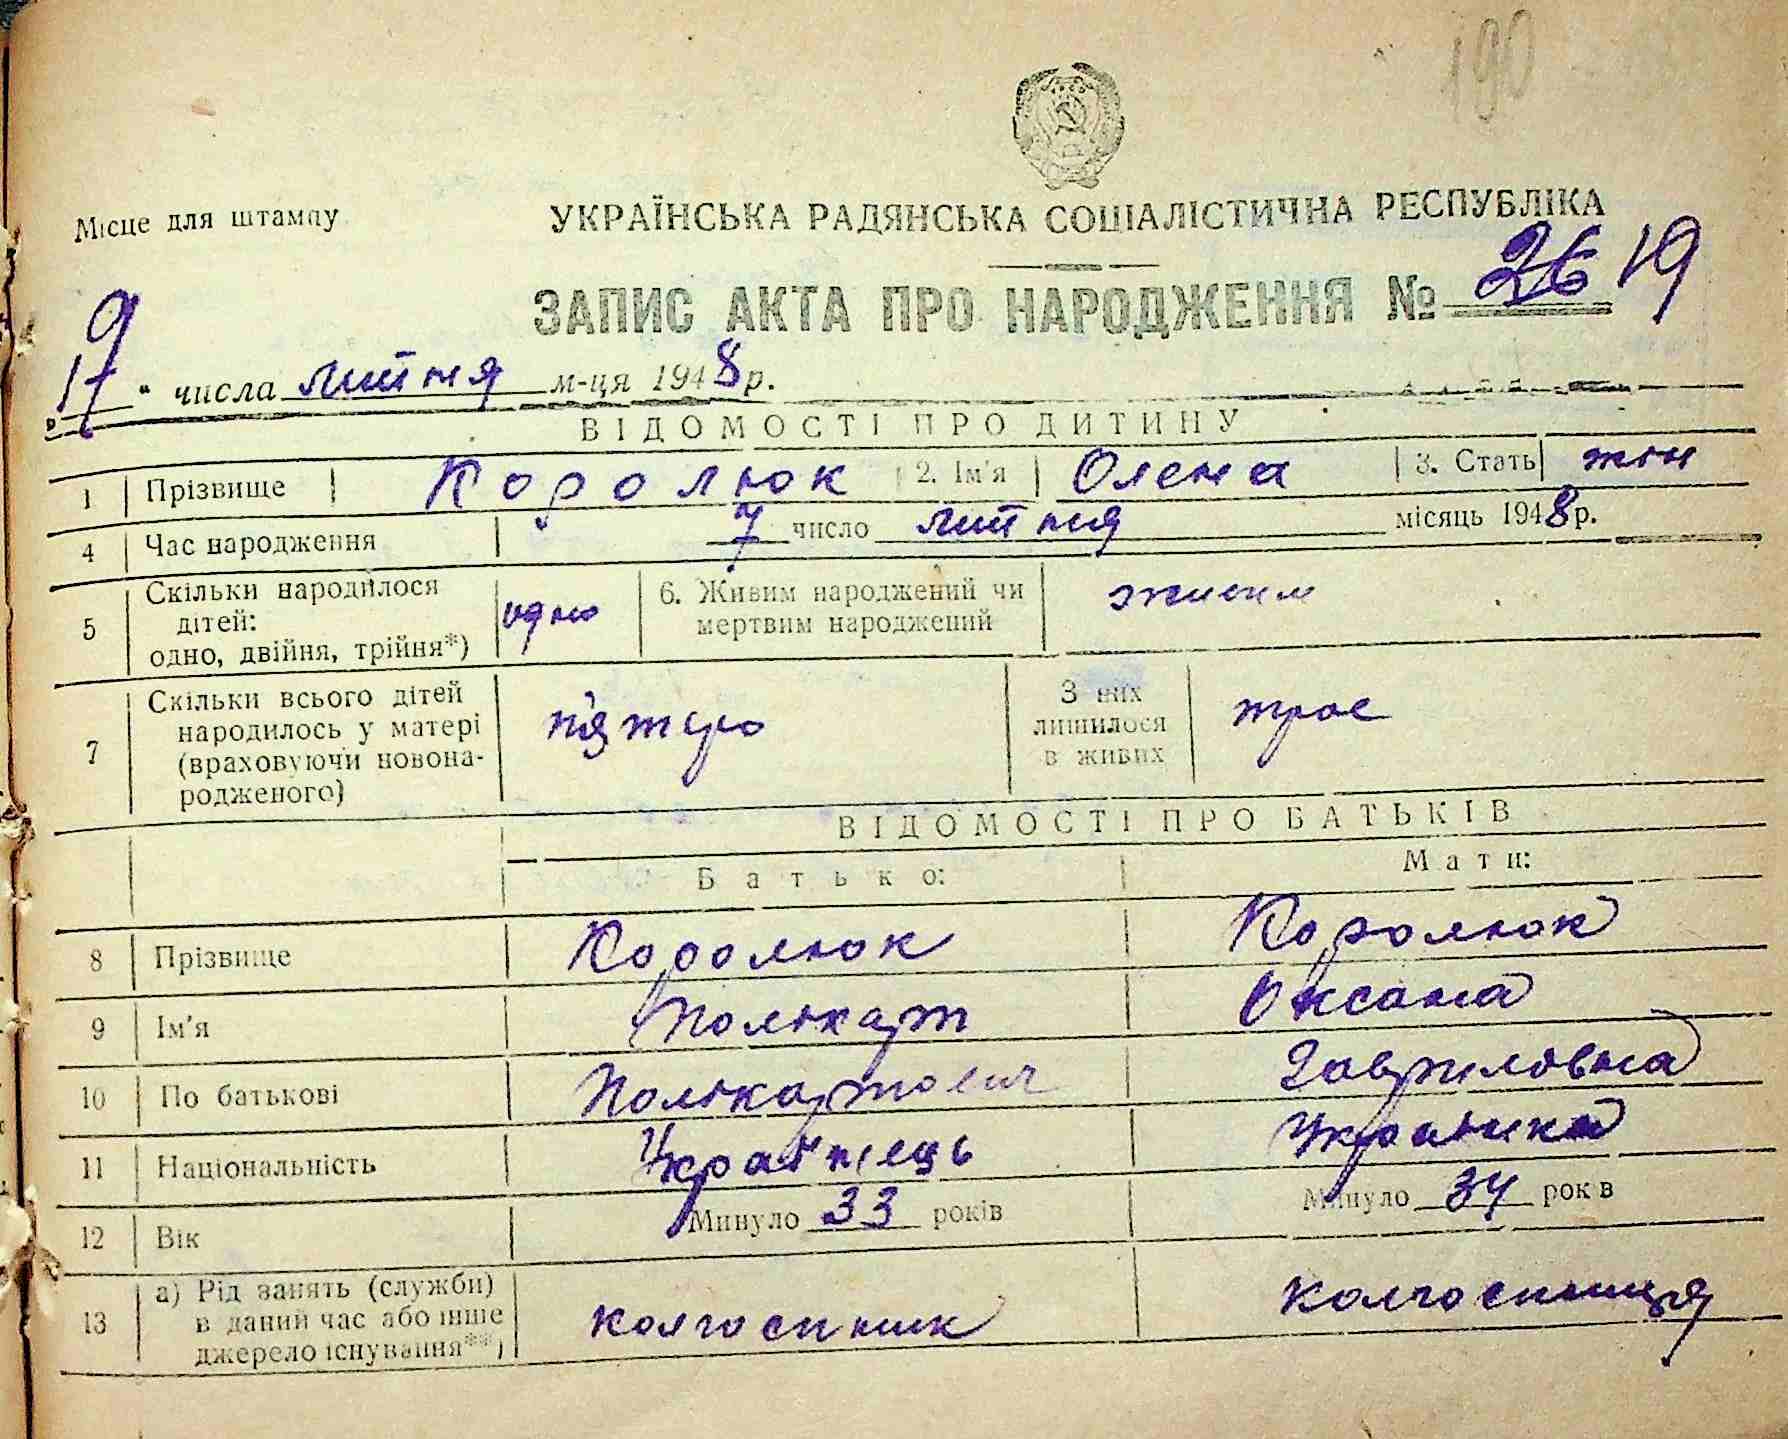 190
Місце для штампу
УКРАЇНСЬКА РАДЯНСЬКА СОЦІАЛІСТИЧНА РЕСПУБЛІКА
ЗАПИС АКТА ПРО НАРОДЖЕННЯ № 26 19
9
17 " числа липня м-ця 1948 р.
ВІДОМОСТІ ПРО ДИТИНУ
1 Прізвище Королюк 2. Ім'я Олена 3. Стать жін
4 Час народження 7 число липня місяць 1948 р.
5 Скільки народилося дітей: одно, двійня, трійня*) одно 6. Живим народжений чи мертвим народжений живим
7 Скільки всього дітей народилось у матері (враховуючи новонародженого) п'ятеро З них лишилося в живих троє
ВІДОМОСТІ ПРО БАТЬКІВ
Батько: Мати:
8 Прізвище Королюк Королюк
9 Ім'я Полікарп Оксана
10 По батькові Полікарпович Гавриловна
11 Національність Українець Українка
12 Вік Минуло 33 років Минуло 34 років
13 а) Рід занять (служби) в даний час або інше джерело існування**) колгоспник колгоспниця